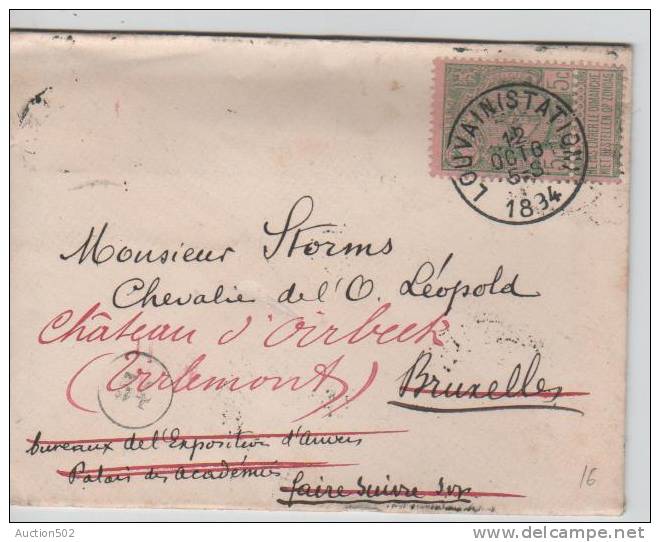 5c
NE PAS LIVRER LE DIMANCHE
NIET BESTELLEN OP ZONDAG
LOUVAIN (STATION)
12
OCTO
5-S
1894
Monsieur Storms
Chevalie de l'O. Léopold
Château d'Oirbeek
(Tirlemont)
Bruxelles
bureaux de l'Exposition d'Anvers
Palais des académies
faire suivre svp
16
Auction502
delcampe.net